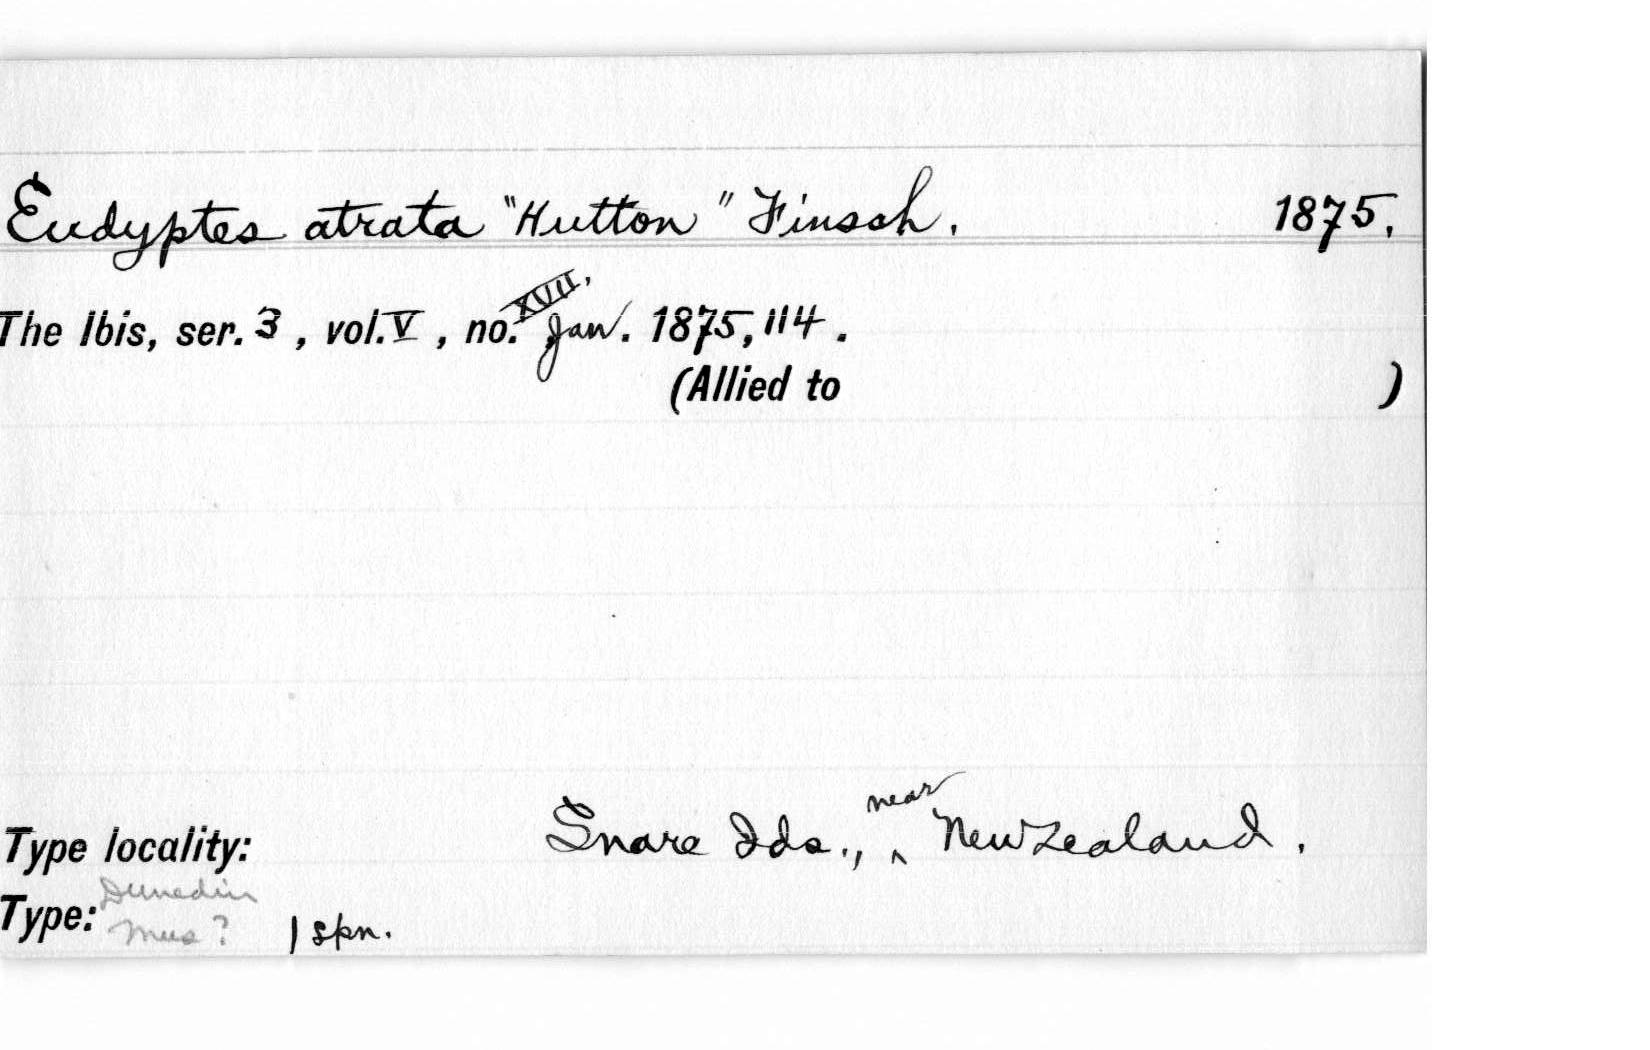 Eudyptes atrata "Hutton" Finsch. 1875.
The Ibis, ser. 3, vol. V, no. XVII, Jan. 1875, 114.
(Allied to )
Type locality: Snare Ids., near New Zealand.
Type: Dunedin Mus? 1 spn.